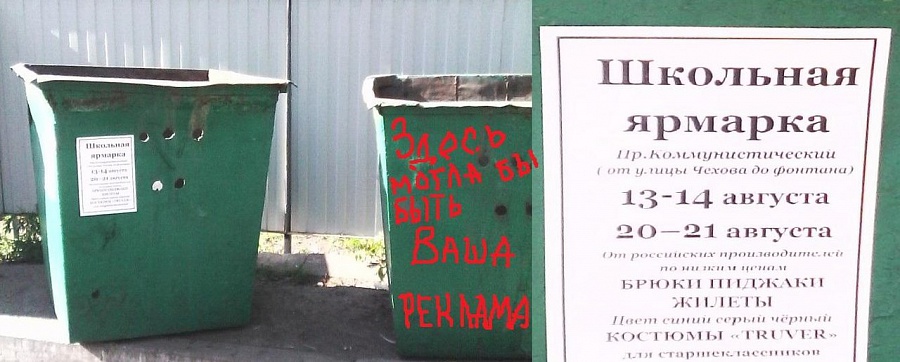 Школьная
ярмарка
13-14 августа
20-21 августа
Здесь
могла бы
быть
Ваша
РЕКЛАМА
Школьная
ярмарка
Пр.Коммунистический
( от улицы Чехова до фонтана)
13-14 августа
20–21 августа
От российских производителей
по низким ценам
БРЮКИ ПИДЖАКИ
ЖИЛЕТЫ
Цвет синий серый чёрный
КОСТЮМЫ «TRUVER»
для старшеклассников